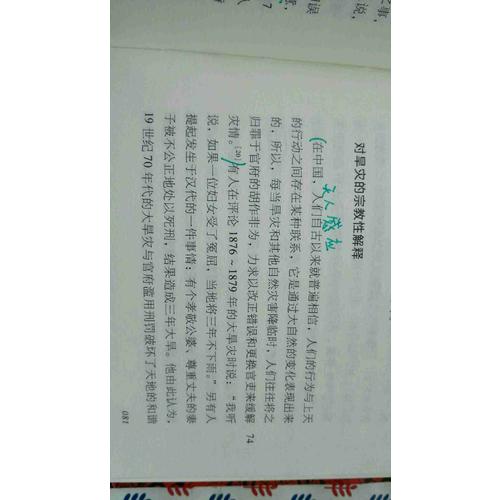 对旱灾的宗教性解释
天人感应
(在中国,人们自古以来就普遍相信,人们的行为与上天
的行动之间存在某种联系,它是通过大自然的变化表现出来
的,所以,每当旱灾和其他自然灾害降临时,人们往往将之
归罪于官府的胡作非为,力求以改正错误和更换官吏来缓解 74
灾情。[20])有人在评论1876~1879年的大旱灾时说:“我听
说,如果一位妇女受了冤屈,当地将三年不下雨。”另有人
提起发生于汉代的一件事情:有个孝敬公婆、尊重丈夫的妻
子被不公正地处以死刑,结果造成三年大旱。他由此认为,
19世纪70年代的大旱灾与官府滥用刑罚破坏了天地的和谐
081